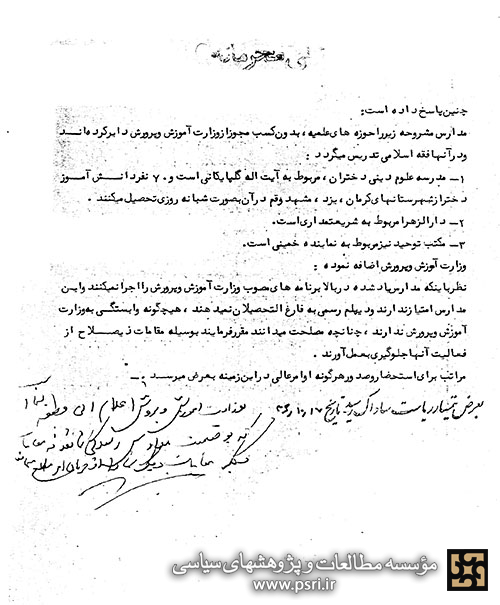 خیلی محرمانه
چنین پاسخ داده است:
مدارس مشروحه زیر را حوزه های علمیه، بدون کسب مجوز از وزارت آموزش وپرورش دایر کرده اند
ودر آنها فقه اسلامی تدریس میگردد:
۱- مدرسه علوم دینی دختران، مربوط به آیت اله گلپایگانی است و ۷۰ نفر دانش آموز
دختر از شهرستانهای کرمان، یزد، مشهد وقم در آن بصورت شبانه روزی تحصیل میکنند.
۲- دارالزهرا مربوط به شریعتمداری است.
۳- مکتب توحید نیز مربوط به نماینده خمینی است.
وزارت آوزش وپرورش اضافه نموده:
نظر باینکه مدارس یاد شده در بالا برنامه های مصوب وزارت آموزش وپرورش را اجرا نمیکنند واین
مدارس امتیاز ندارند ودیپلم رسمی به فارغ التحصیلان نمیدهند، هیچگونه وابستگی به وزارت
آموزش وپرورش ندارند، چنانچه مصلحت میدانند مقرر فرمایند بوسیله مقامات ذیصلاح از
فعالیت آنها جلوگیری بعمل آورند.
مراتب برای استحضار وصدور هرگونه اوامر عالی در این زمینه بعرض میرسد.-
بعرض تیمسار ریاست ساواک رسید تاریخ
وزارت آموزش و پرورش اعلام
مؤسسه مطالعات و پژوهشهای سیاسی
www.psri.ir